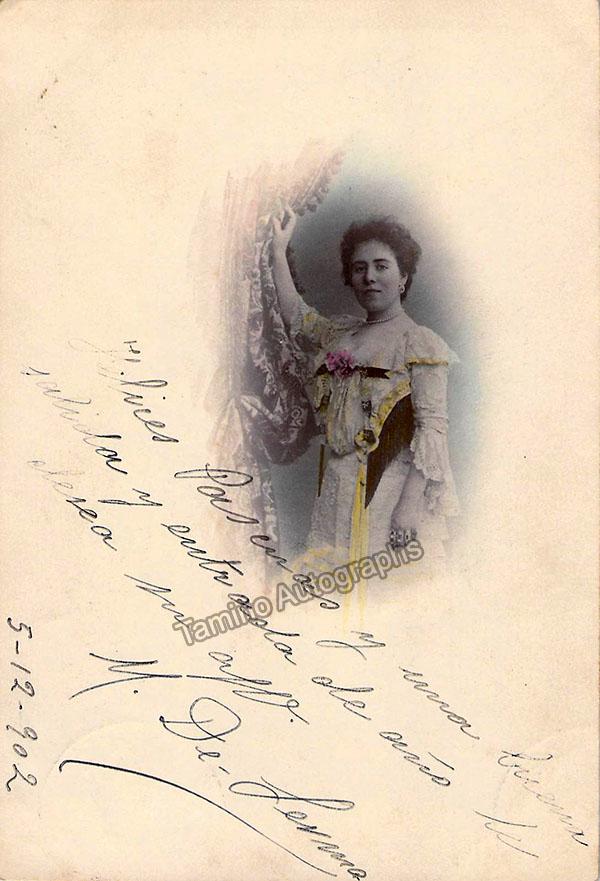 Felices Pascuas y una buena
salida y entrada de año te
desea su aff.
M. De-
5-12-902
Tamino Autographs